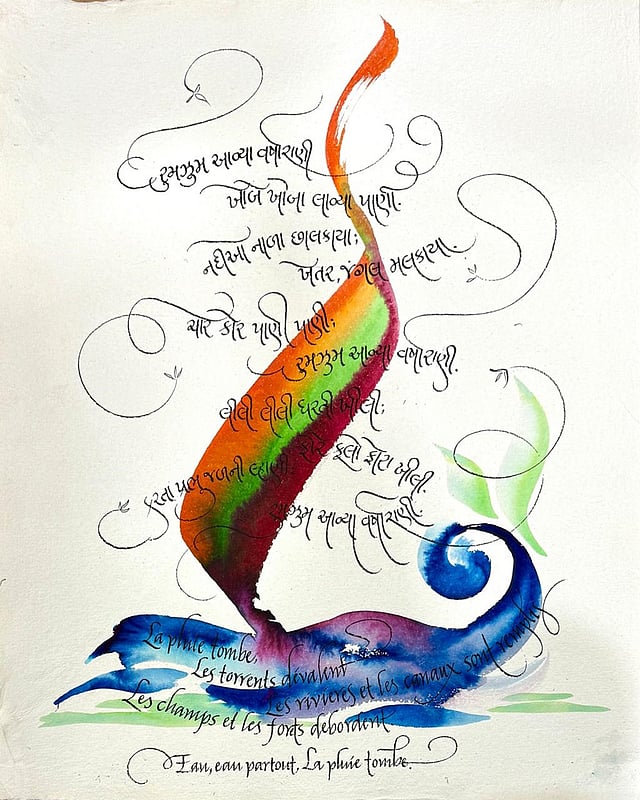 રુમઝુમ આવ્યા વર્ષારાણી
ખોબે ખોબા લાવ્યા પાણી.
નદીઓ નાળા છાલકાયા;
ખેતર, જંગલ મલકાયા.
ચારે કોર પાણી પાણી;
રુમઝુમ આવ્યા વર્ષારાણી.
લીલી લીલી ધરતી ખીલી;
ફૂલો ફોરા ખીલી.
કરતા પ્રભુ જળની લ્હાણી,
રુમઝુમ આવ્યા વર્ષારાણી.
La pluie tombe,
Les torrents dévalent
Les rivieres et les canaux sont remplis
Les champs et les forts debordent
Eau, eau partout, La pluie tombe.